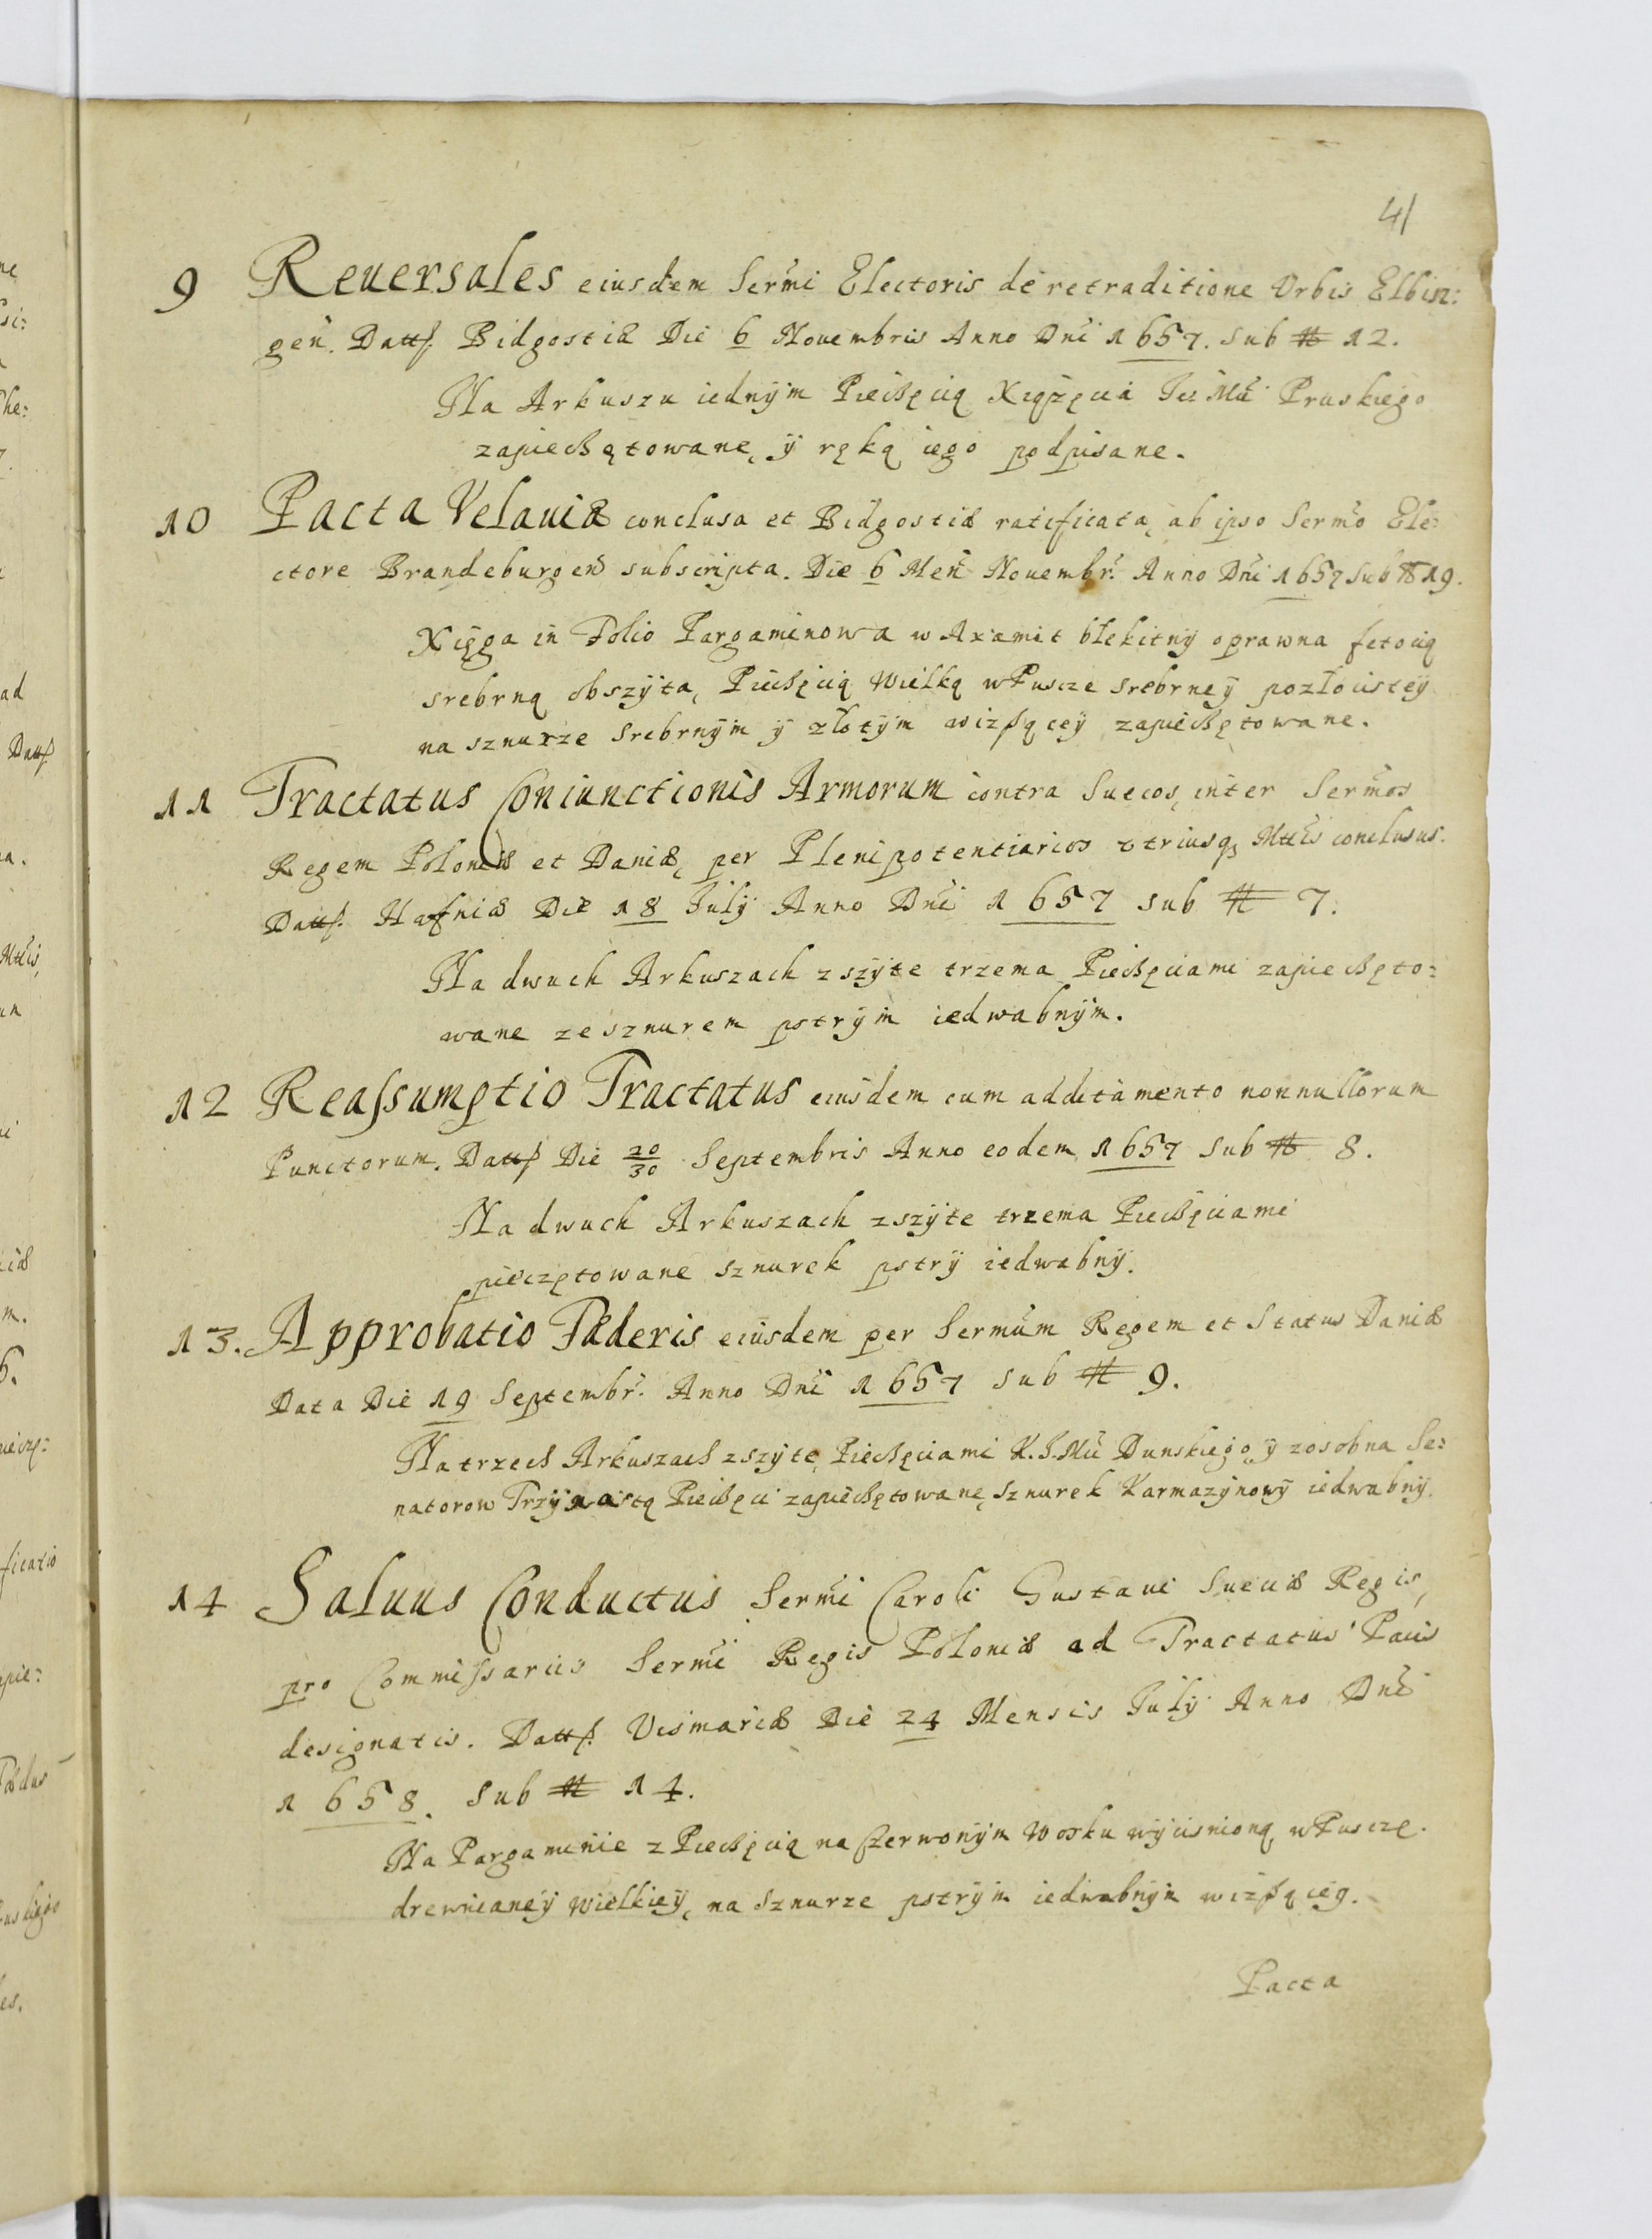 41
9 Reuersales eiusdem Sermi Electoris de retraditione Vrbis Elbin:
gen. Datt. Bidgostiæ Die 6 Nouembris Anno Dni 1657. sub # 12.
Na Arkuszu iednÿm Pieczęcią Xiążęcia Jeº Mci Pruskiego
zapieczętowane, ÿ ręką iego podpisane.
10 Pacta Velauiæ conclusa et Bidgostiæ ratificata, ab ipso Sermo Ele:
ctore Brandeburgen subscripta. Die 6 Men Nouembr. Anno Dni 1657 sub # 19.
Xięga in Folio Pargaminowa w Axamit błekitnÿ oprawna fetocią
srebrną obszÿta, Pieczęcią Wielką w Puscze srebrneÿ pozłocisteÿ
na sznurze srebrnÿm ÿ złotÿm wisząceÿ zapieczętowane.
11 Tractatus Coniunctionis Armorum contra Suecos, inter Sermos
Regem Poloniæ et Daniæ, per Plenipotentiarios vtriusq Mttis conclusus.
Datt. Hafniæ Die 18 Julÿ Anno Dni 1657 sub # 7.
Na dwuch Arkuszach zszÿte trzema Pieczęciami zapieczęto:
wane ze sznurem pstrÿm iedwabnÿm.
12 Reassumptio Tractatus eiusdem cum additamento nonnullorum
Punctorum. Datt Die 20/30 Septembris Anno eodem 1657 sub # 8.
Na dwuch Arkuszach zszÿte trzema Pieczęciami
pieczętowane sznurek pstrÿ iedwabnÿ.
13. Approbatio Fæderis eiusdem per Sermum Regem et Status Daniæ
Data Die 19 Septembr. Anno Dni 1657 sub # 9.
Na trzech Arkuszach zszÿte, Pieczęciami K.J.Mci Dunskiego, ÿ zosobna Se:
natorow Trzÿnastą Pieczęci zapieczętowane, sznurek Karmazÿnowÿ iedwabnÿ.
14 Saluus Conductus Sermi Caroli Gustaui Sueciæ Regis,
pro Commissariis Sermi Regis Poloniæ ad Tractatus Pacis
designatis. Datt. Vismariæ Die 24 Mensis Julÿ Anno Dni
1658. sub # 14.
Na Pargaminie z Pieczęcią na Czerwonÿm Wosku wÿcisnioną, w Puscze
drewnianeÿ Wielkieÿ, na sznurze pstrÿm iedwabnÿm wiszącey.
Pacta